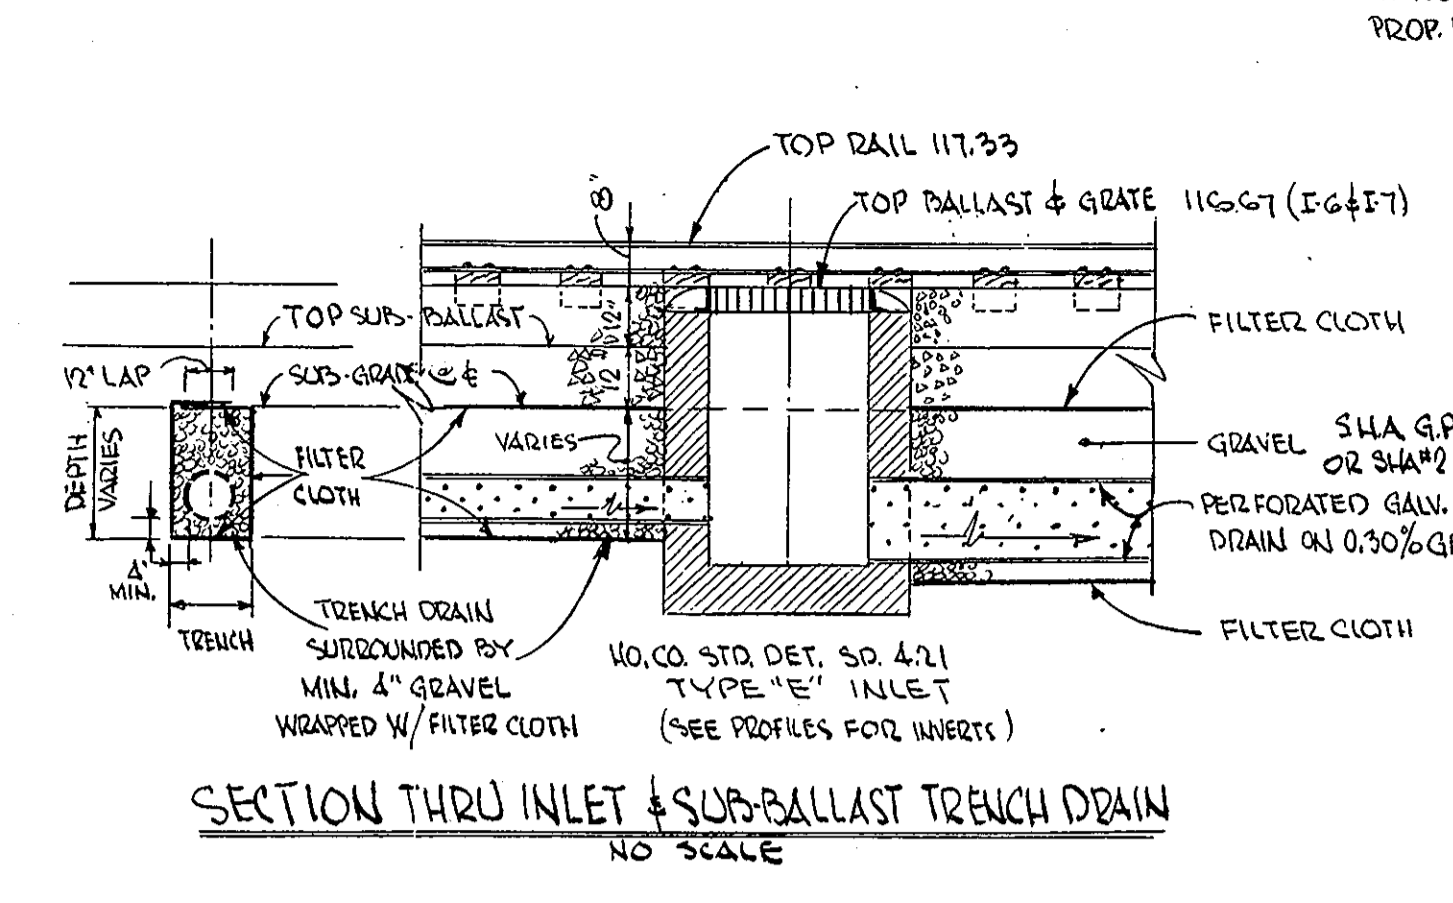 PROP.
TOP RAIL 117.33
8"
TOP BALLAST & GRATE 116.67 (I-6 & I-7)
TOP SUB-BALLAST
12"
FILTER CLOTH
12" LAP
SUB-GRADE @ ℄
12"
DEPTH
VARIES
FILTER
CLOTH
VARIES
GRAVEL
S.H.A G.P
OR SHA #2
PERFORATED GALV.
DRAIN ON 0.30%
4"
MIN.
TRENCH
TRENCH DRAIN
SURROUNDED BY
MIN. 4" GRAVEL
WRAPPED W/ FILTER CLOTH
HO. CO. STD. DET. SD. 4.21
TYPE "E" INLET
(SEE PROFILES FOR INVERTS)
FILTER CLOTH
SECTION THRU INLET & SUB-BALLAST TRENCH DRAIN
NO SCALE